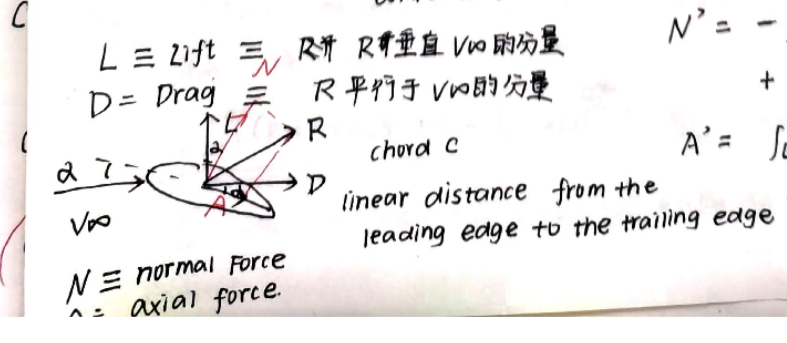 L ≡ Lift ≡ R 垂直 V∞ 的分量
D = Drag ≡ R 平行于 V∞ 的分量
N
L
R
α
D
A
α
V∞
chord c
linear distance from the
leading edge to the trailing edge
N ≡ normal Force
axial force.
N' = -
+
A' = ∫